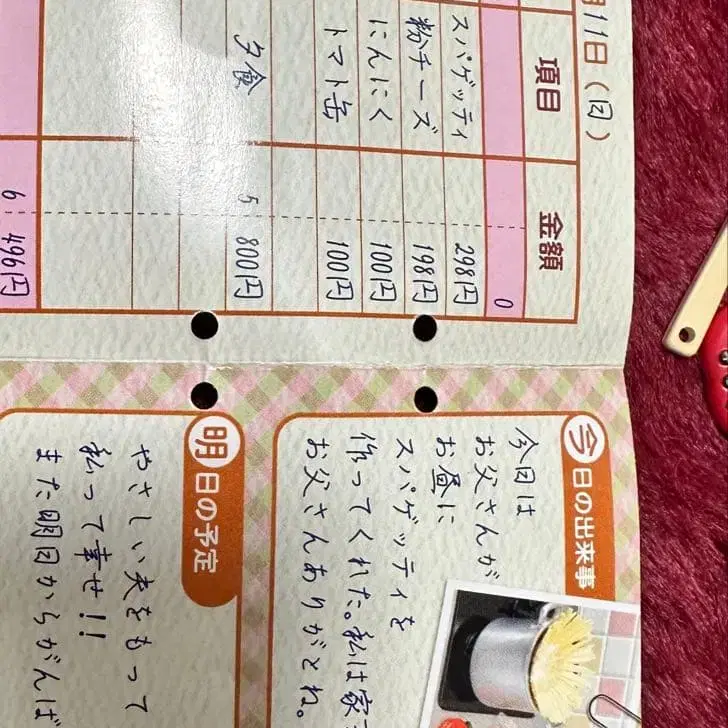 月11日(日)
項目 金額
0
スパゲッティ 298円
粉チーズ 198円
にんにく 100円
トマト缶 100円
夕食 5 800円
6 496円
今日の出来事
今日は
お父さんが
お昼に
スパゲッティを
作ってくれた。私は家
お父さんありがとね。
明日の予定
やさしい夫をもって
私って幸せ!!
また明日からがんば